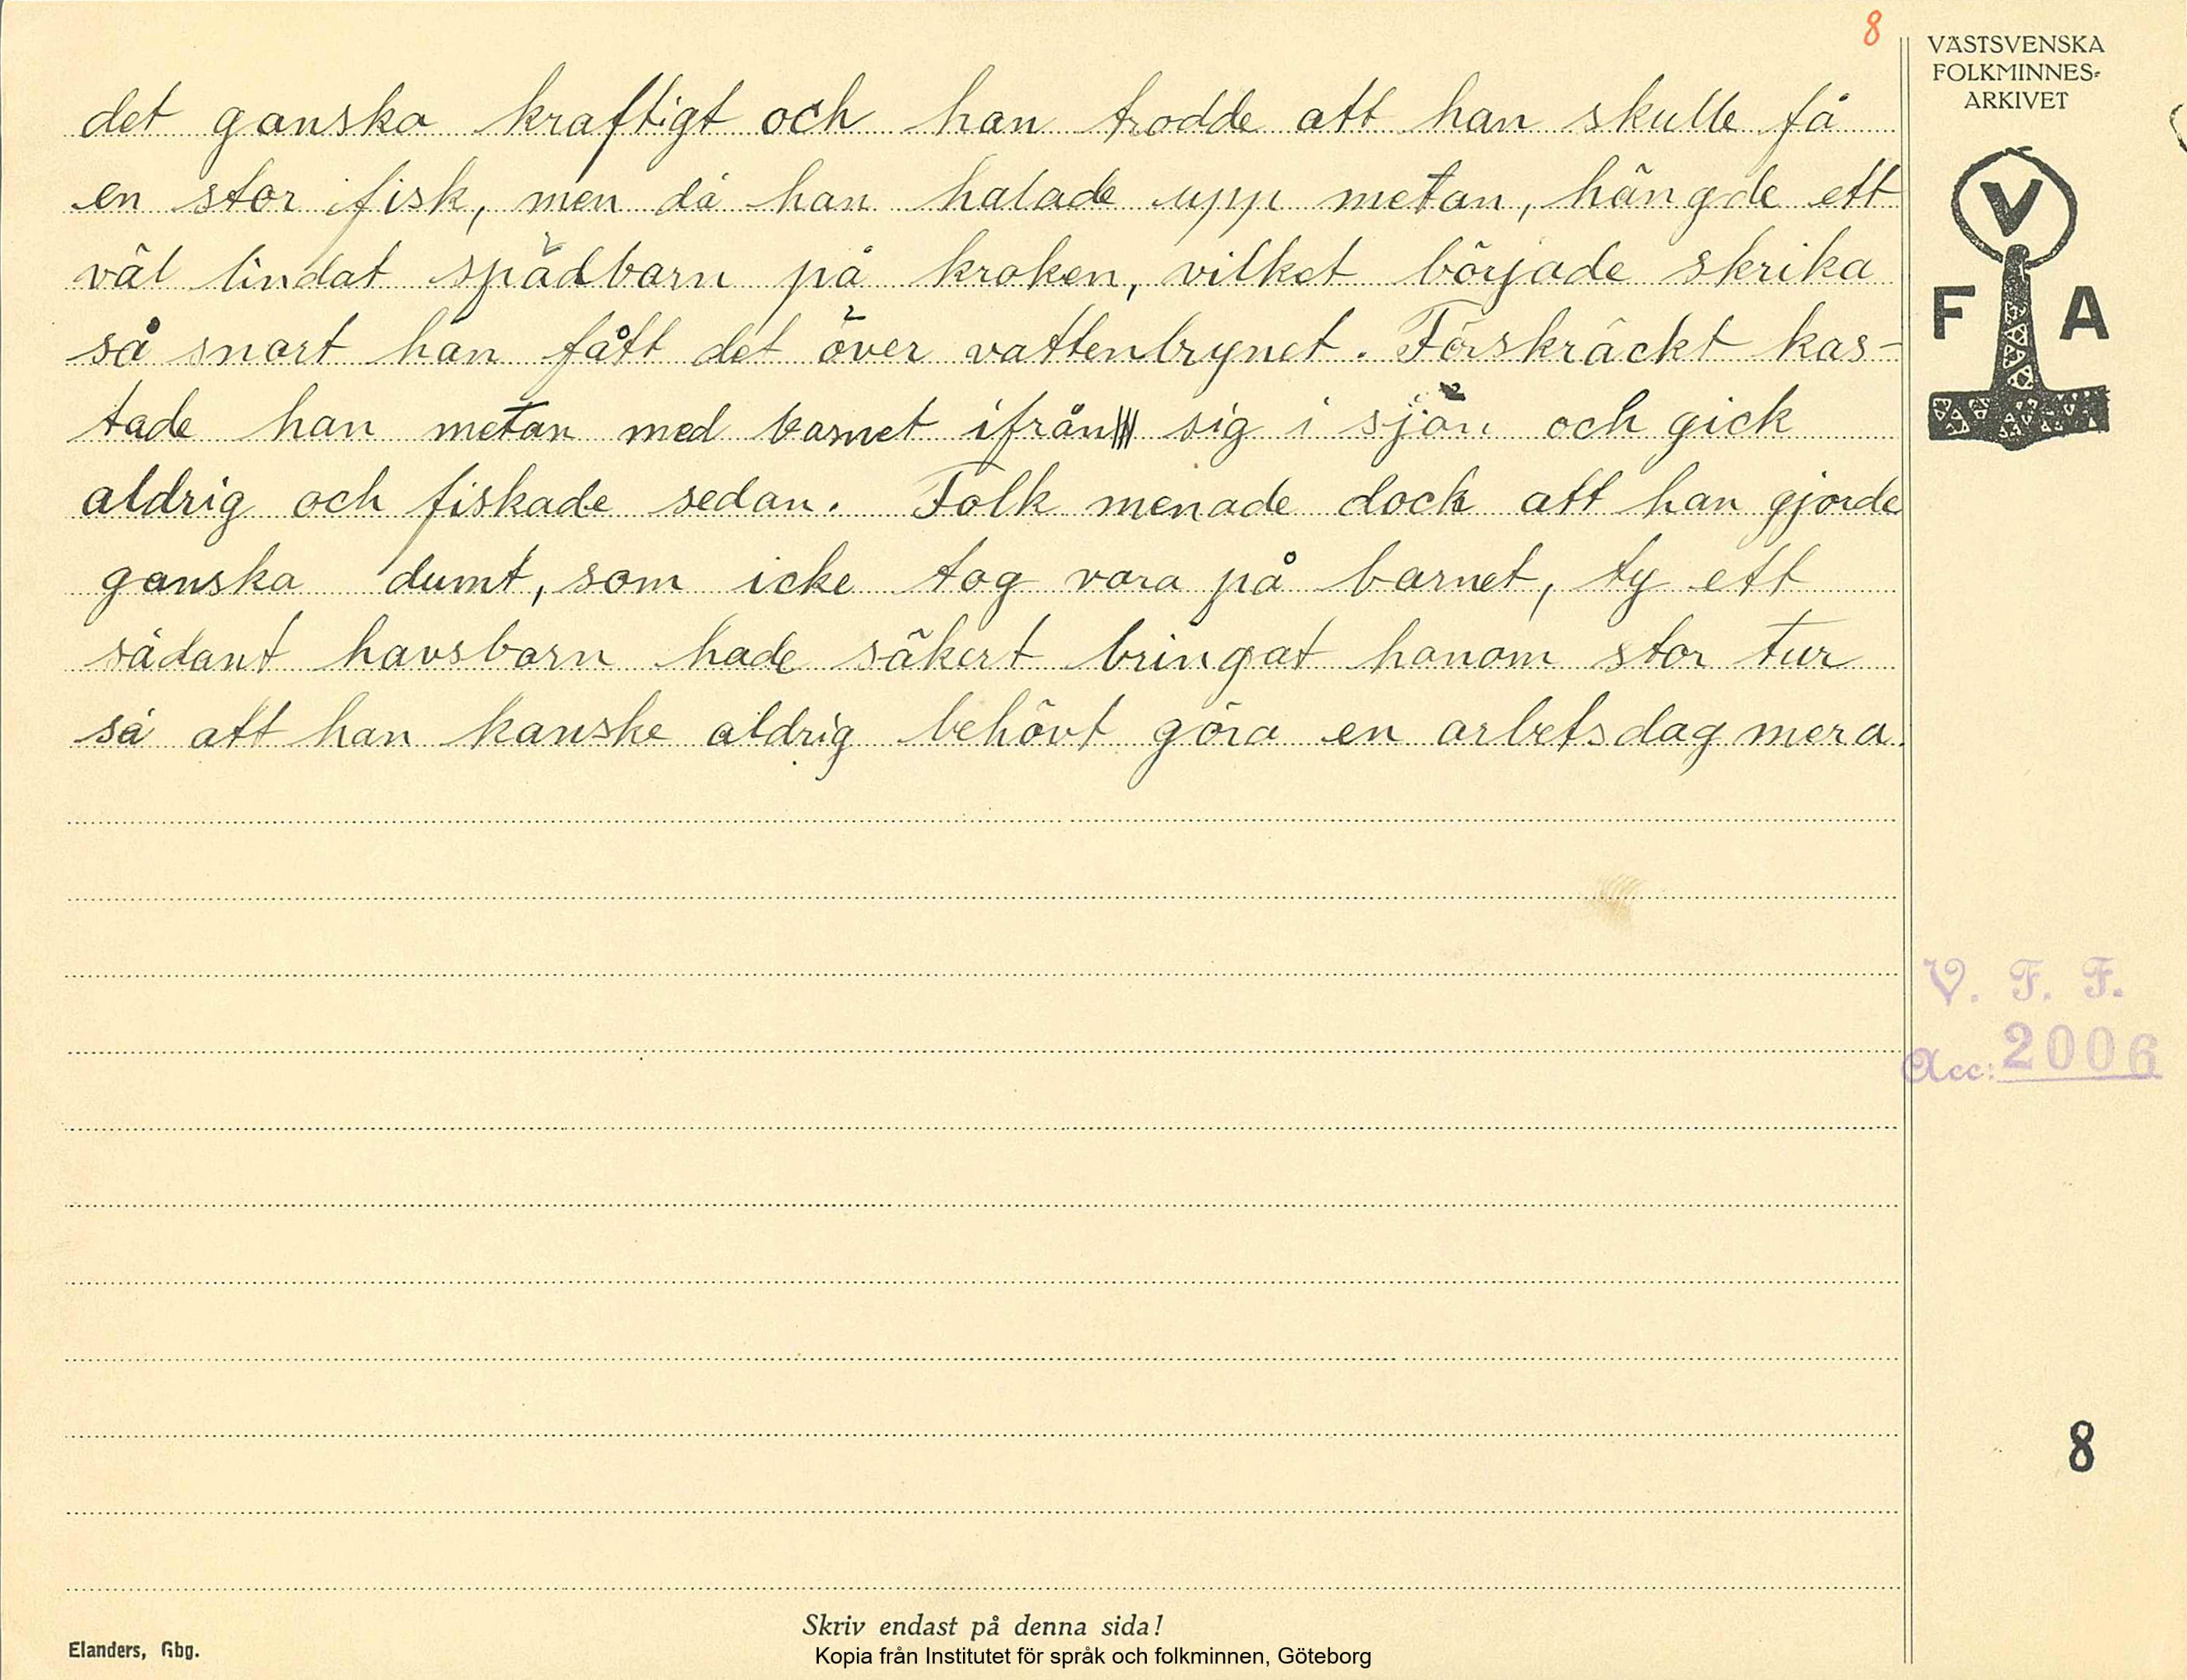 8
VÄSTSVENSKA
FOLKMINNES-
ARKIVET
V
F A
det ganska kraftigt och han trodde att han skulle få
en stor fisk, men då han halade upp metan, hängde ett
väl lindat spädbarn på kroken, vilket började skrika
så snart han fått det över vattenbrynet. Förskräckt kas-
tade han metan med barnet ifrån sig i sjön och gick
aldrig och fiskade sedan. Folk menade dock att han gjorde
ganska dumt, som icke tog vara på barnet, ty ett
sådant havsbarn hade säkert bringat honom stor tur
så att han kanske aldrig behövt göra en arbetsdag mera.
V. F. F.
Acc: 2006
8
Skriv endast på denna sida!
Elanders, Gbg.
Kopia från Institutet för språk och folkminnen, Göteborg